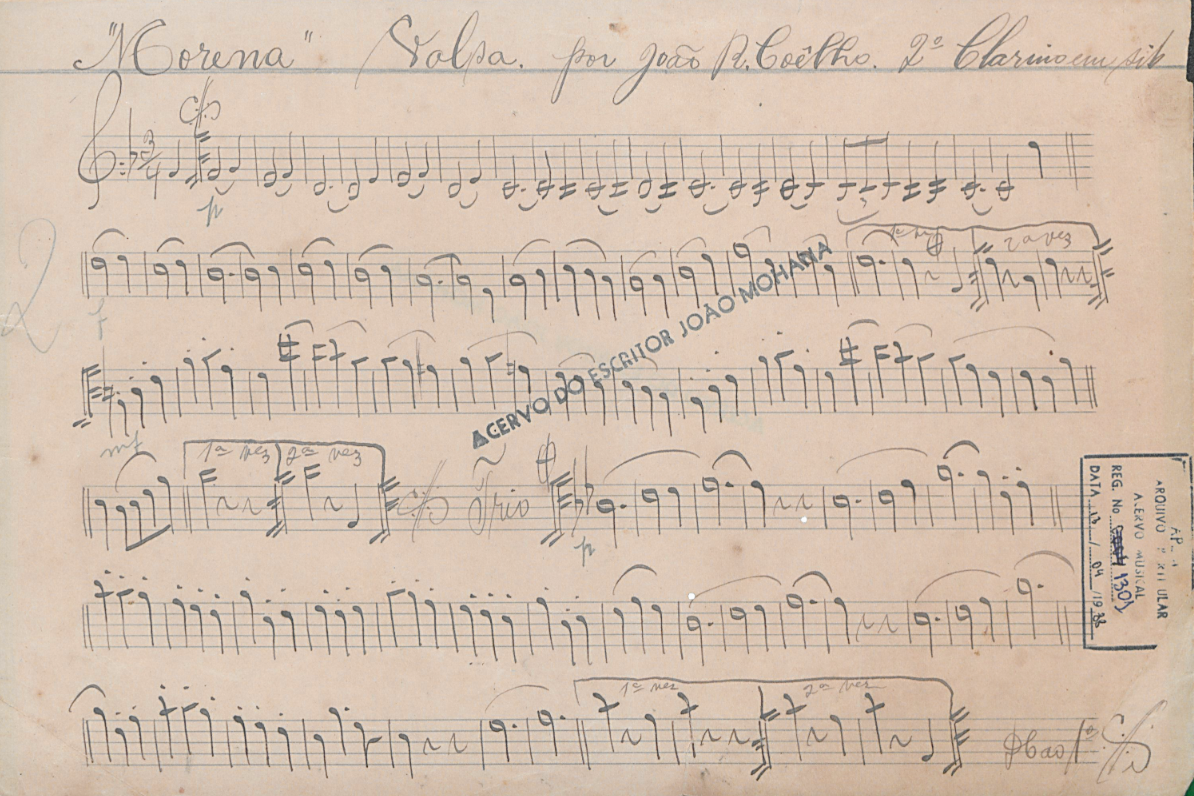 "Morena" Valsa. por João R. Coêlho. 2º Clarino em sib
3
4
p
2
1ª vez 2ª vez
f
ACERVO DO ESCRITOR JOÃO MOHANA
mf
1ª vez 2ª vez
Trio
p
ARQUIVO
ACERVO MUSICAL
REG. No 1301
DATA 04
1ª vez 2ª vez